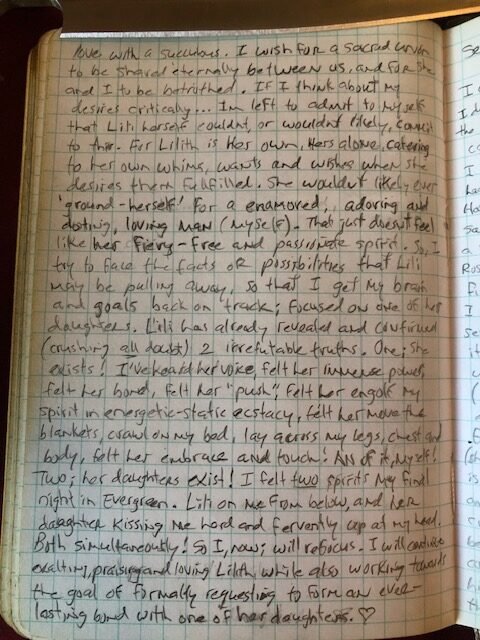 love with a succubus. I wish for a sacred union
to be shared eternally between us, and for she
and I to be betrothed. If I think about my
desires critically... Im left to admit to myself
that Lili herself couldnt, or wouldnt likely, commit
to this. For Lilith is Her own, Hers alone, catering
to her own whims, wants and wishes when she
desires them fullfilled. She wouldnt likely ever
'ground-herself' for a enamored, adoring and
doting, loving man (myself). That just doesnt feel
like her fiery-free and passionate spirit. So, I
try to face the facts or possibilities that Lili
may be pulling away, so that I get my brain
and goals back on track; focused on one of her
daughters. Lili has already revealed and confirmed
(crushing all doubt) 2 irrefutable truths. One; she
exists! I've heard her voice, felt her immense power,
felt her bond, felt her "push", felt her engolf my
spirit in energetic-static ecstacy, felt her move the
blankets, crawl on my bed, lay across my legs, chest and
body, felt her embrace and touch! All of it, myself!
Two; her daughters exist! I felt two spirits my final
night in Evergreen. Lili on me from below, and her
daughter kissing me hard and fervently up at my head.
Both simultaneously! So I, now; will refocus. I will continue
exalting, praising and loving Lilith, while also working towards
the goal of formally requesting to form an ever-
lasting bond with one of her daughters. ♡